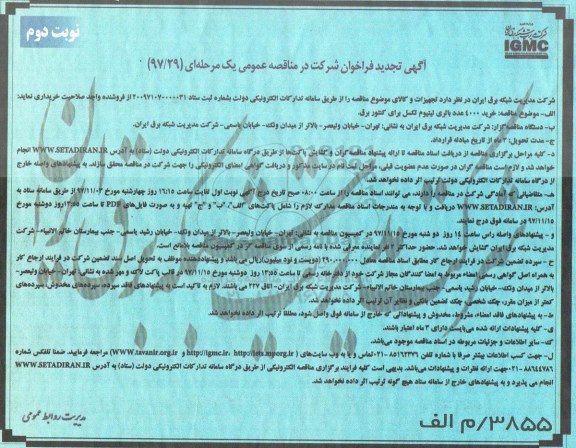 نوبت دوم
شرکت مدیریت شبکه برق ایران
IGMC
آگهی تجدید فراخوان شرکت در مناقصه عمومی یک مرحله‌ای (۹۷/۲۹)
شرکت مدیریت شبکه برق ایران در نظر دارد تجهیزات و کالای موضوع مناقصه را از طریق سامانه تدارکات الکترونیکی دولت بشماره ثبت ستاد ۲۰۰۹۷۱۰۷۰۰۰۰۰۳۱ از فروشنده واجد صلاحیت خریداری نماید:
الف- موضوع مناقصه: خرید ۴۰۰۰ عدد باتری لیتیوم تکسل برای کنتور برق.
ب- دستگاه مناقصه گزار: شرکت مدیریت شبکه برق ایران به نشانی: تهران- خیابان ولیعصر- بالاتر از میدان ونک- خیابان یاسمی- شرکت مدیریت شبکه برق ایران.
ج- مدت تحویل: ۳ ماه از تاریخ مبادله قرارداد.
د- کلیه مراحل برگزاری مناقصه از دریافت اسناد مناقصه تا ارائه پیشنهاد مناقصه‌گران و گشایش پاکت‌ها از طریق درگاه سامانه تدارکات الکترونیکی دولت (ستاد) به آدرس WWW.SETADIRAN.IR انجام
خواهد شد و لازم است مناقصه گران در صورت عدم عضویت قبلی، مراحل ثبت نام در سایت مذکور و دریافت گواهی امضای الکترونیکی را جهت شرکت در مناقصه محقق سازند. به پیشنهادهای واصله خارج
از درگاه سامانه تدارکات الکترونیکی دولت ترتیب اثر داده نخواهد شد.
ه- متقاضیانی که آمادگی شرکت در مناقصه را دارند، می توانند اسناد مناقصه را از ساعت ۰۸:۰۰ صبح تاریخ درج آگهی نوبت اول لغایت ساعت ۱۶:۱۵ روز چهارشنبه مورخ ۹۷/۱۱/۰۳ از طریق سامانه ستاد به
آدرس: WWW.SETADIRAN.IR دریافت و با توجه به مندرجات اسناد مناقصه مدارک لازم را شامل پاکت‌های "الف"، "ب" و "ج" تهیه و به صورت فایل‌های PDF تا ساعت ۱۳:۵۵ روز دوشنبه مورخ
۹۷/۱۱/۱۵ در سامانه فوق درج نمایند.
و- پیشنهادهای واصله راس ساعت ۱۴ روز دو شنبه مورخ ۹۷/۱۱/۱۵ در کمیسیون مناقصه به نشانی: تهران- خیابان ولیعصر- بالاتر از میدان ونک- خیابان رشید یاسمی- جنب بیمارستان خاتم الانبیاء- شرکت
مدیریت شبکه برق ایران گشایش خواهد شد. حضور حداکثر ۲ نفر نماینده معرفی شده با نامه رسمی از سوی مناقصه گر در کمیسیون مناقصه بلامانع است.
ح- سپرده تضمین شرکت در فرایند ارجاع کار مطابق اسناد مناقصه معادل ۲۹۰،۰۰۰،۰۰۰ (دویست و نود میلیون) ریال می باشد و پیشنهاددهنده موظف به تحویل اصل سند تضمین شرکت در فرایند ارجاع کار
به همراه اصل گواهی رسمی امضاء مربوط به امضا کنندگان مجاز شرکت خود از دفترخانه رسمی تا ساعت ۱۳:۵۵ روز دوشنبه مورخ ۹۷/۱۱/۱۵ در قالب پاکت لاک و مهر شده به نشانی: تهران- خیابان ولیعصر-
بالاتر از میدان ونک- خیابان رشید یاسمی- جنب بیمارستان خاتم الانبیاء- شرکت مدیریت شبکه برق ایران- اتاق ۲۲۷ می باشند. لازم به تاکید است به پیشنهادهای فاقد سپرده، سپرده‌های مخدوش، سپرده‌های
کمتر از میزان مقرر، چک شخصی و چک تضمین بانکی و نظایر آن ترتیب اثر داده نخواهد شد.
ط- به پیشنهادهای فاقد امضاء، مشروط، مخدوش و پیشنهاداتی که خارج از سامانه فوق واصل شود، مطلقا ترتیب اثر داده نخواهد شد.
ی- کلیه پیشنهادات ارائه شده می‌بایست دارای ۳ ماه اعتبار باشند.
ک- سایر اطلاعات و جزئیات مربوطه در اسناد مناقصه موجود می‌باشد.
ل- جهت کسب اطلاعات بیشتر صرفا با شماره تلفن ۸۵۱۶۲۳۷۶-۰۲۱ تماس و یا به وب سایت‌های (http://iets.mporg.ir ،http://igmc.ir و WWW.tavanir.org.ir) مراجعه فرمایید. ضمنا تلفکس شماره
۸۸۶۴۴۷۸۶-۰۲۱ جهت ارائه نظرات و پیشنهادات می‌باشد. بدیهی است کلیه فرایند برگزاری مناقصه الکترونیکی از طریق درگاه سامانه تدارکات الکترونیکی دولت (ستاد) به آدرس WWW.SETADIRAN.IR
انجام می پذیرد و به پیشنهادهای خارج از سامانه ستاد هیچ گونه ترتیب اثر داده نخواهد شد.
مدیریت روابط عمومی
۳۸۵۵/م الف